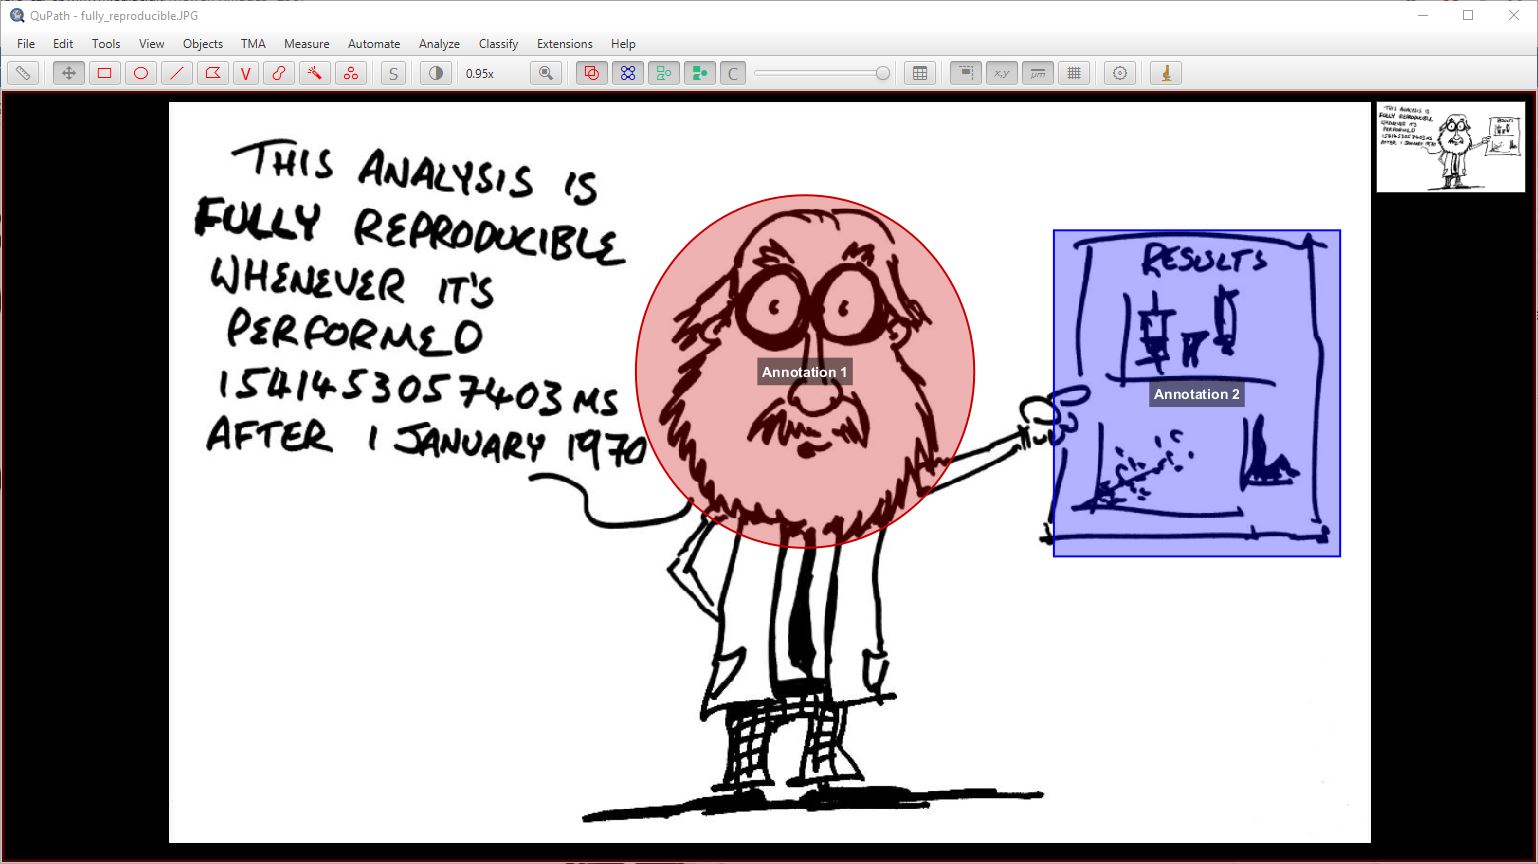 QuPath - fully_reproducible.JPG
File Edit Tools View Objects TMA Measure Automate Analyze Classify Extensions Help
V S 0.95x C x,y μm
THIS ANALYSIS IS
FULLY REPRODUCIBLE
WHENEVER IT'S
PERFORMED
1541453057403 MS
AFTER 1 JANUARY 1970
Annotation 1
RESULTS
Annotation 2
THIS ANALYSIS IS
FULLY REPRODUCIBLE
WHENEVER IT'S
PERFORMED
1541453057403 MS
AFTER 1 JANUARY 1970
RESULTS